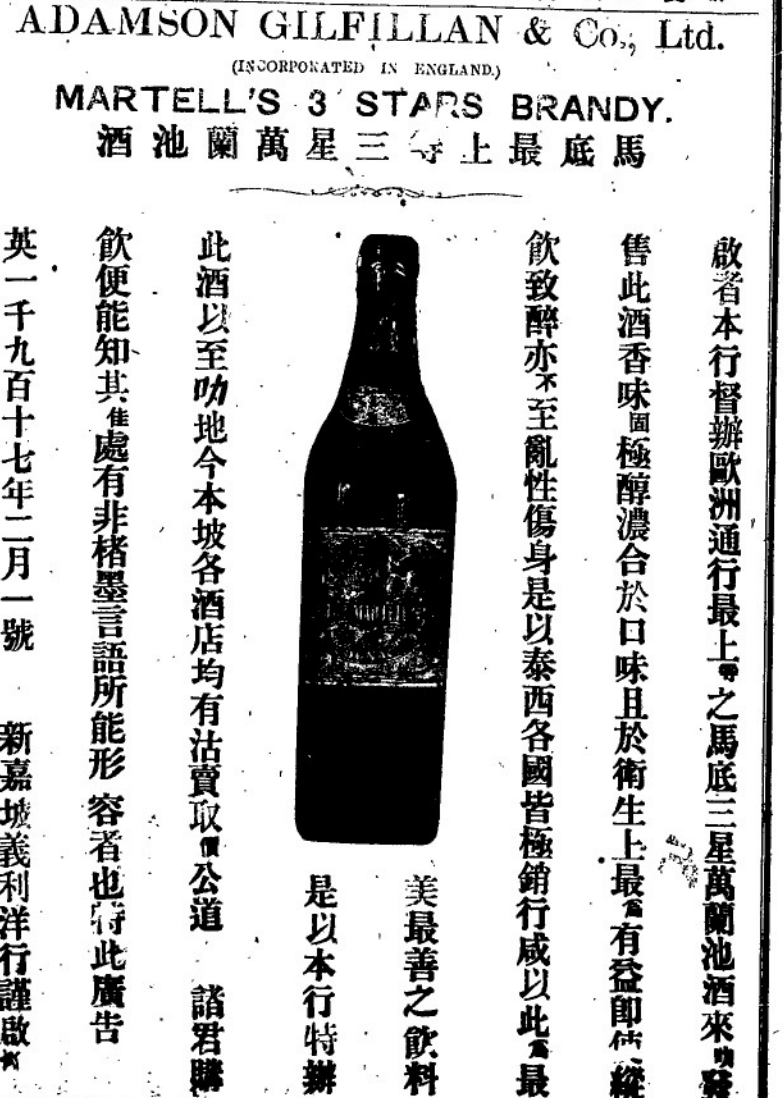 ADAMSON GILFILLAN & Co., Ltd.
(INCORPORATED IN ENGLAND.)
MARTELL'S 3 STARS BRANDY.
馬底最上等三星萬蘭池酒
啟者本行督辦歐洲通行最上等之馬底三星萬蘭池酒來叻發
售此酒香味固極醇濃合於口味且於衛生上最為有益即使縱
飲致醉亦不至亂性傷身是以泰西各國皆極銷行咸以此為最
美最善之飲料
是以本行特辦
此酒以至叻地今本坡各酒店均有沽賣取價公道 諸君購
飲便能知其佳處有非楮墨言語所能形容者也特此廣告
英一千九百十七年二月一號 新嘉坡義利洋行謹啟